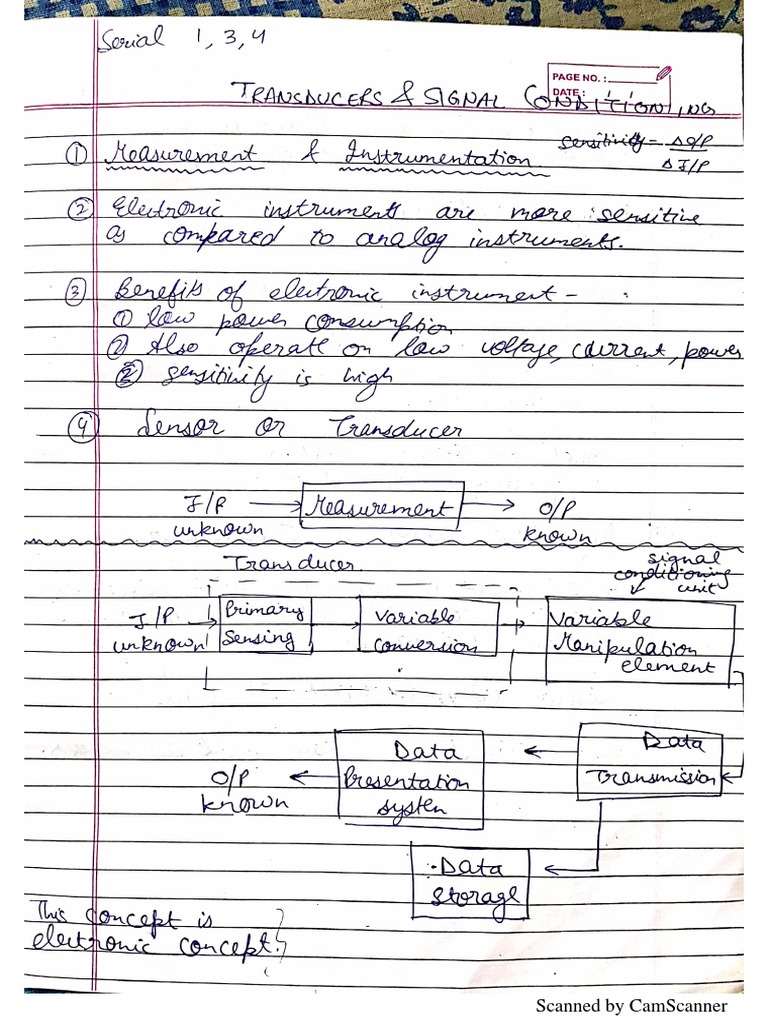 Serial 1, 3, 4
PAGE NO. :
DATE :
TRANSDUCERS & SIGNAL CONDITIONING
① Measurement & Instrumentation
Sensitivity = ΔO/P
ΔI/P
② Electronic instruments are more sensitive
as compared to analog instruments.
③ Benefits of electronic instrument -
① low power consumption
② Also operate on low voltage, current, power
③ sensitivity is high
④ Sensor or Transducer
I/P Measurement O/P
unknown known
Transducer
signal
conditioning
unit
I/P Primary Variable Variable
unknown Sensing conversion Manipulation
element
Data Data
O/P Presentation Transmission
known system
Data
Storage
This concept is
electronic concept.
Scanned by CamScanner